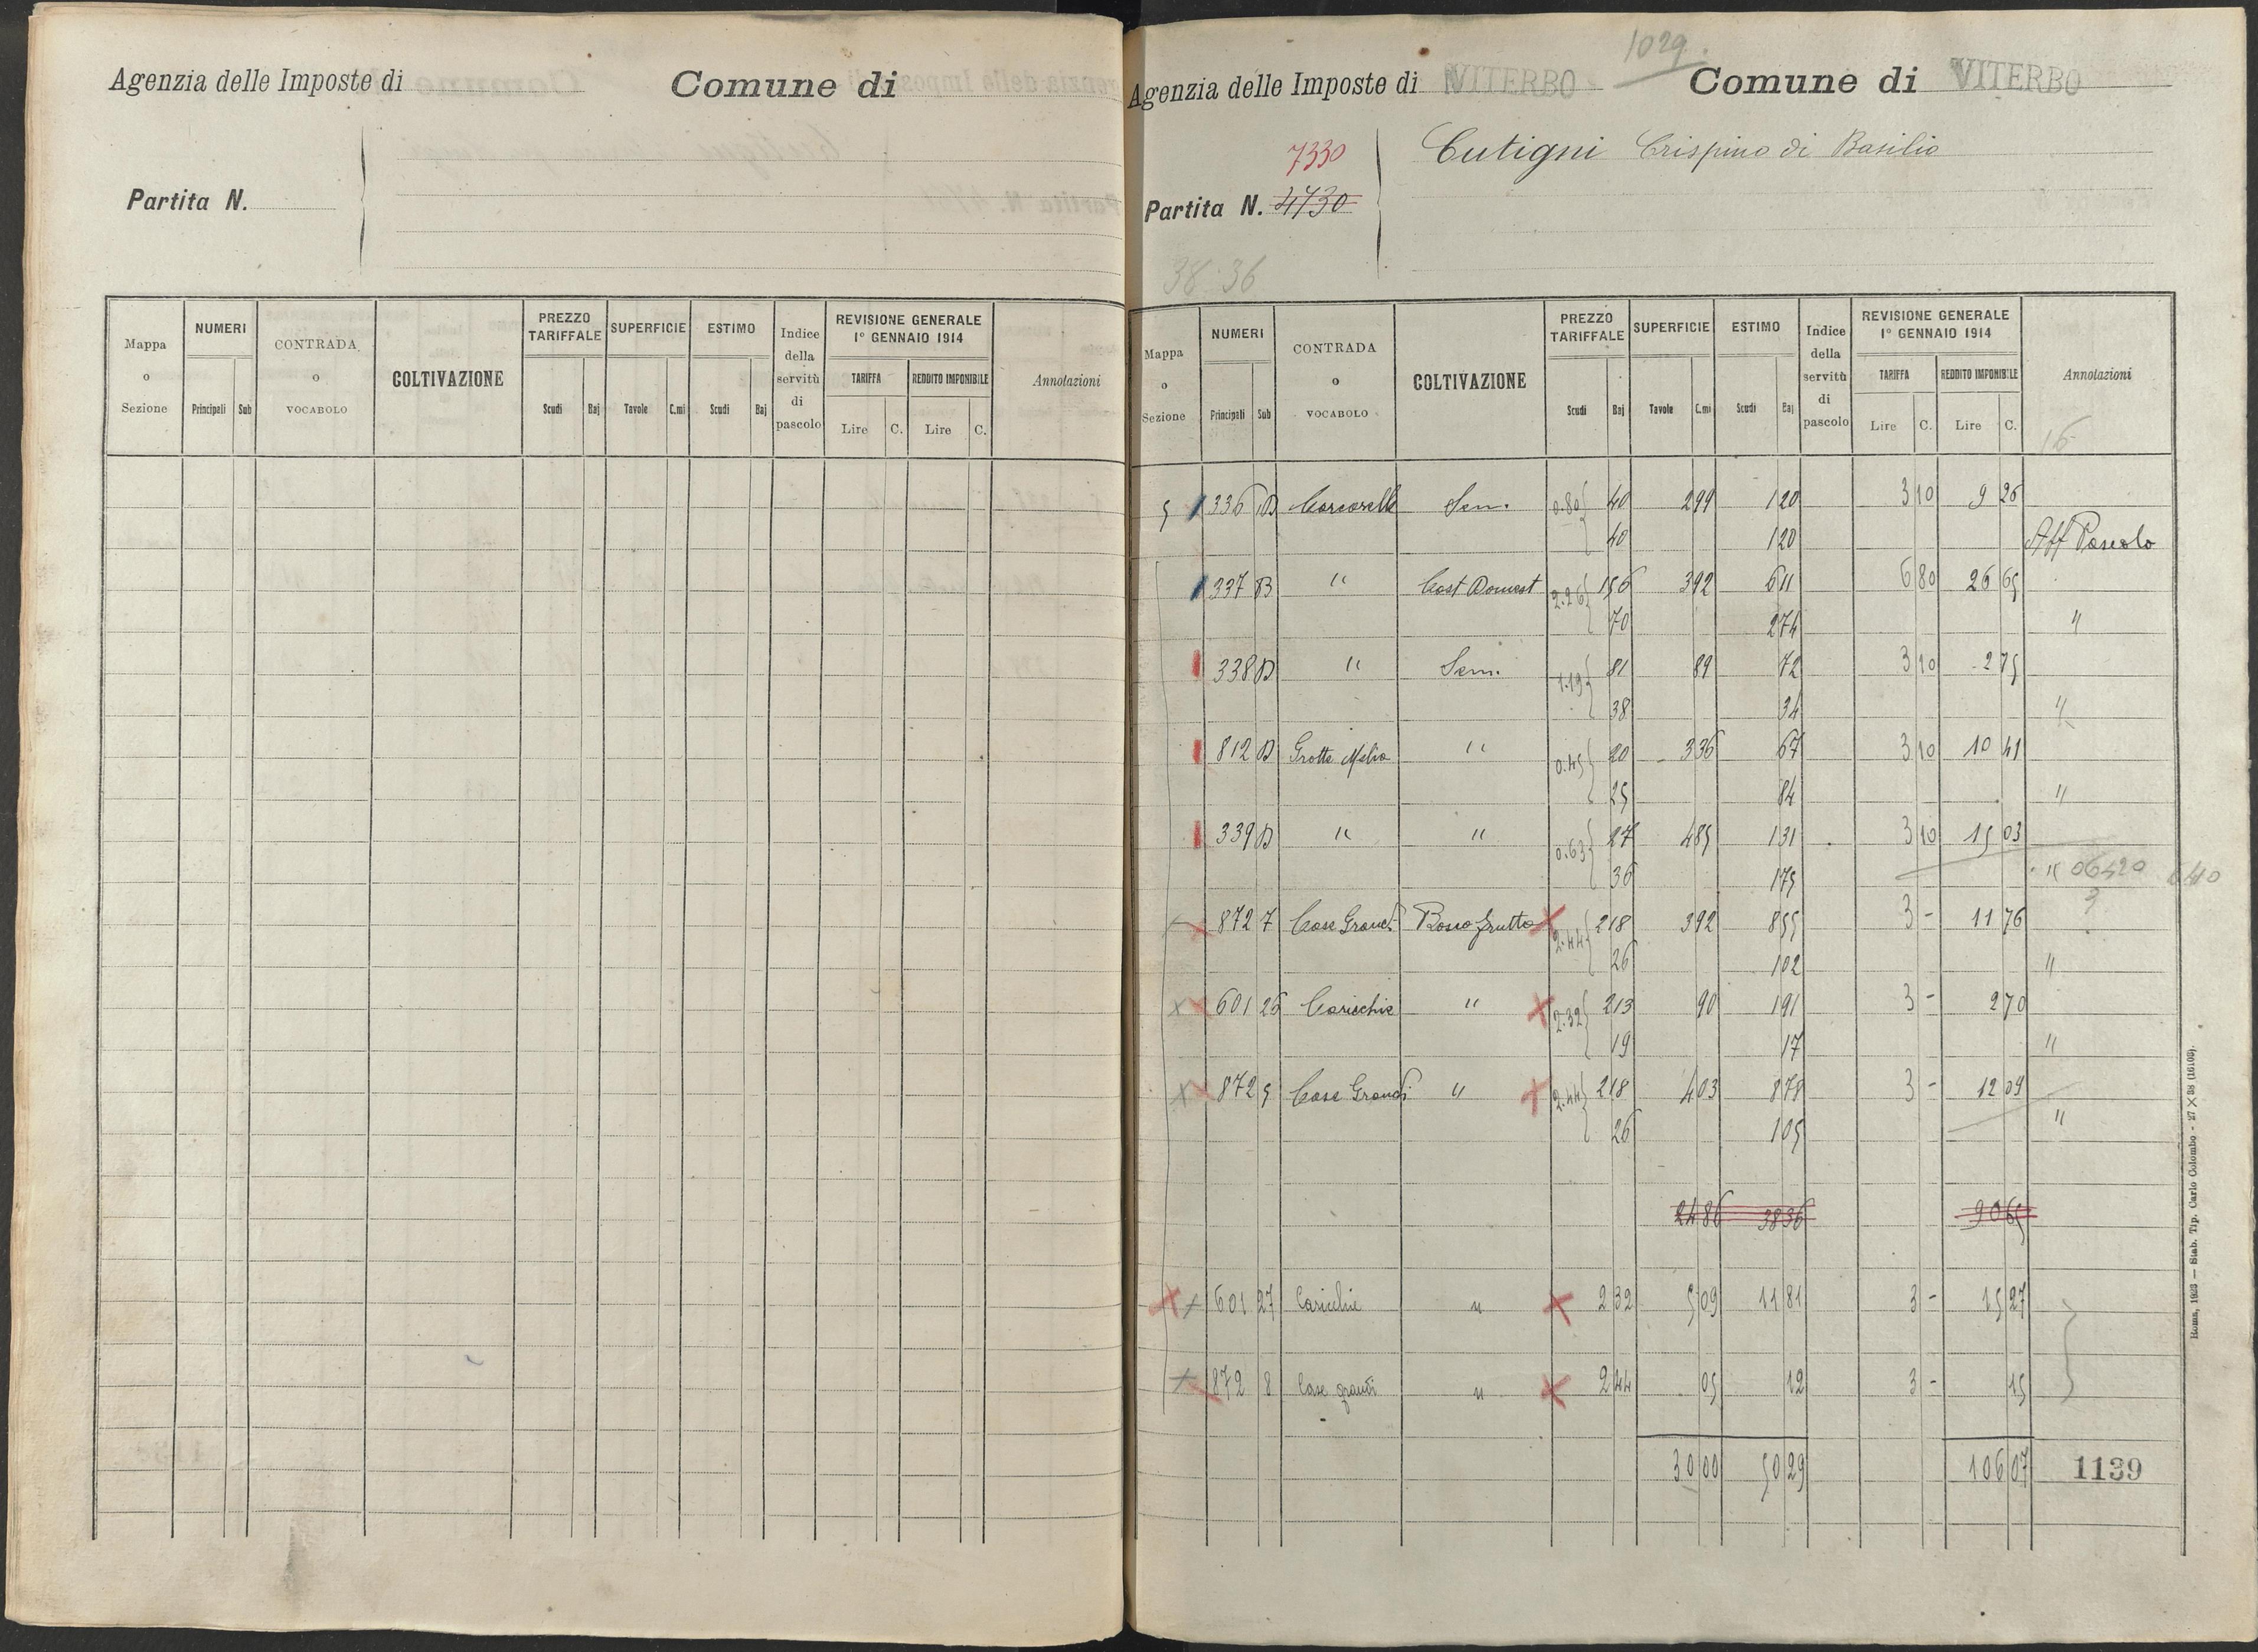 Agenzia delle Imposte di
Comune di
Partita N.
Mappa o Sezione
NUMERI
Principali
Sub
CONTRADA o VOCABOLO
COLTIVAZIONE
PREZZO TARIFFALE
Scudi
Baj
SUPERFICIE
Tavole
C.mi
ESTIMO
Scudi
Baj
Indice della servitù di pascolo
REVISIONE GENERALE 1° GENNAIO 1914
TARIFFA
Lire
C.
REDDITO IMPONIBILE
Lire
C.
Annotazioni
1029.
Agenzia delle Imposte di VITERBO
Comune di VITERBO
7330
Partita N. 4730
Cutigni Crispino di Basilio
38.36
Mappa o Sezione
NUMERI
Principali
Sub
CONTRADA o VOCABOLO
COLTIVAZIONE
PREZZO TARIFFALE
Scudi
Baj
SUPERFICIE
Tavole
C.mi
ESTIMO
Scudi
Baj
Indice della servitù di pascolo
REVISIONE GENERALE 1° GENNAIO 1914
TARIFFA
Lire
C.
REDDITO IMPONIBILE
Lire
C.
Annotazioni
16
5 336 Sem. 0.80 40 299 120 3 10 9 26
40 120 Aff Pascolo
337 B " Cast Domest 2.26 156 392 611 6 80 26 65
70 274 "
338 " Sem. 1.19 81 89 72 3 10 2 75
38 34 "
812 Grotte Melia " 0.45 20 336 67 3 10 10 41
25 84 "
339 " " 0.63 27 485 131 3 10 15 03
36 175 " 06420 640
?
872 7 Case Grandi Bosco frutto 2.44 218 392 855 3 - 11 76
26 102 "
601 26 Caricchie " 2.32 213 90 191 3 - 2 70
19 17 "
872 5 Case Grandi " 2.44 218 403 878 3 - 12 09
26 105 "
24 86 38 36 90 65
601 27 Caricchie " 2 32 5 09 11 81 3 - 15 27
872 8 Case grandi " 2 44 05 12 3 - 15
30 00 50 29 106 07 1139
Roma, 1923 — Stab. Tip. Carlo Colombo - 27 × 38 (16103).